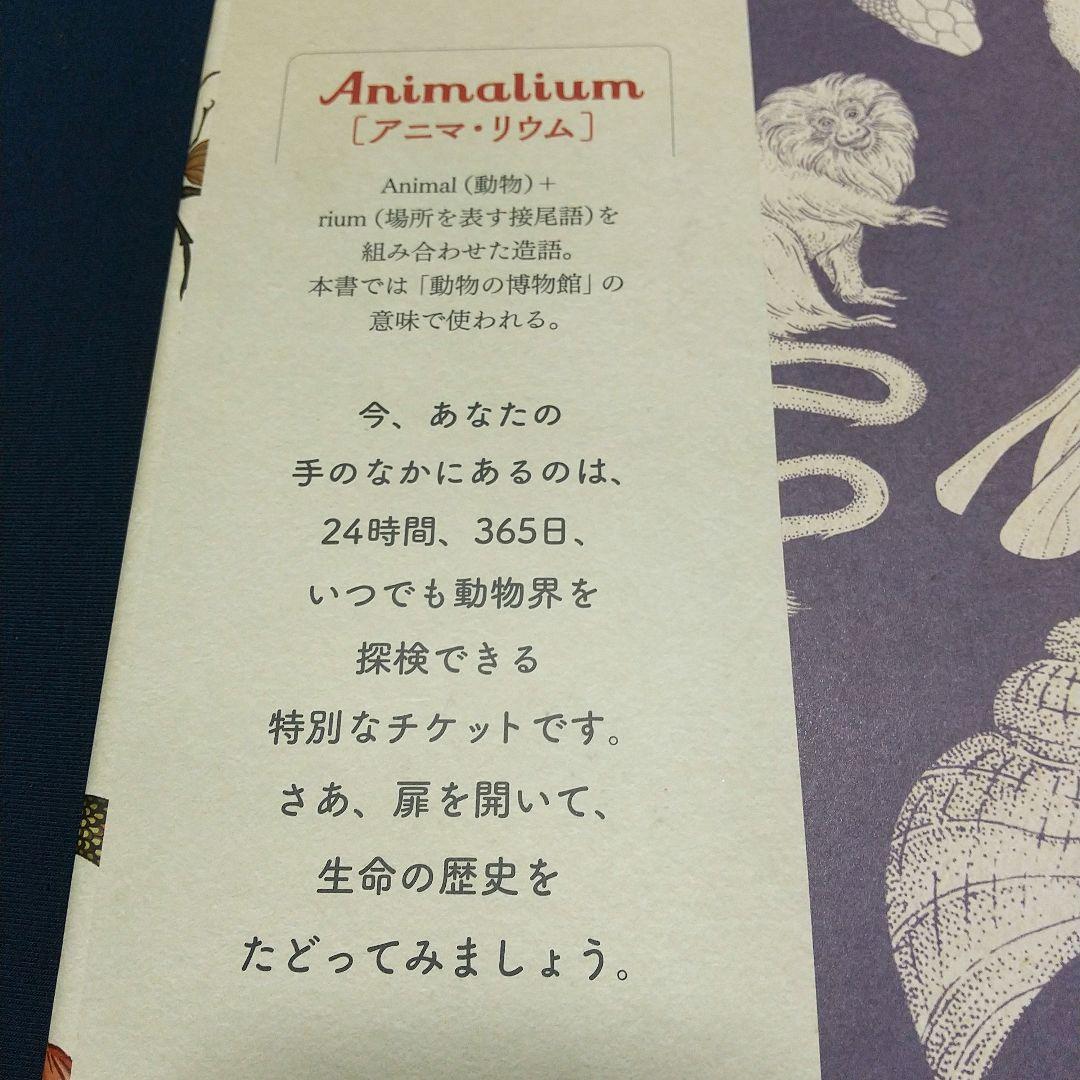 Animalium
［アニマ・リウム］
Animal（動物）＋
rium（場所を表す接尾語）を
組み合わせた造語。
本書では「動物の博物館」の
意味で使われる。
今、あなたの
手のなかにあるのは、
24時間、365日、
いつでも動物界を
探検できる
特別なチケットです。
さあ、扉を開いて、
生命の歴史を
たどってみましょう。